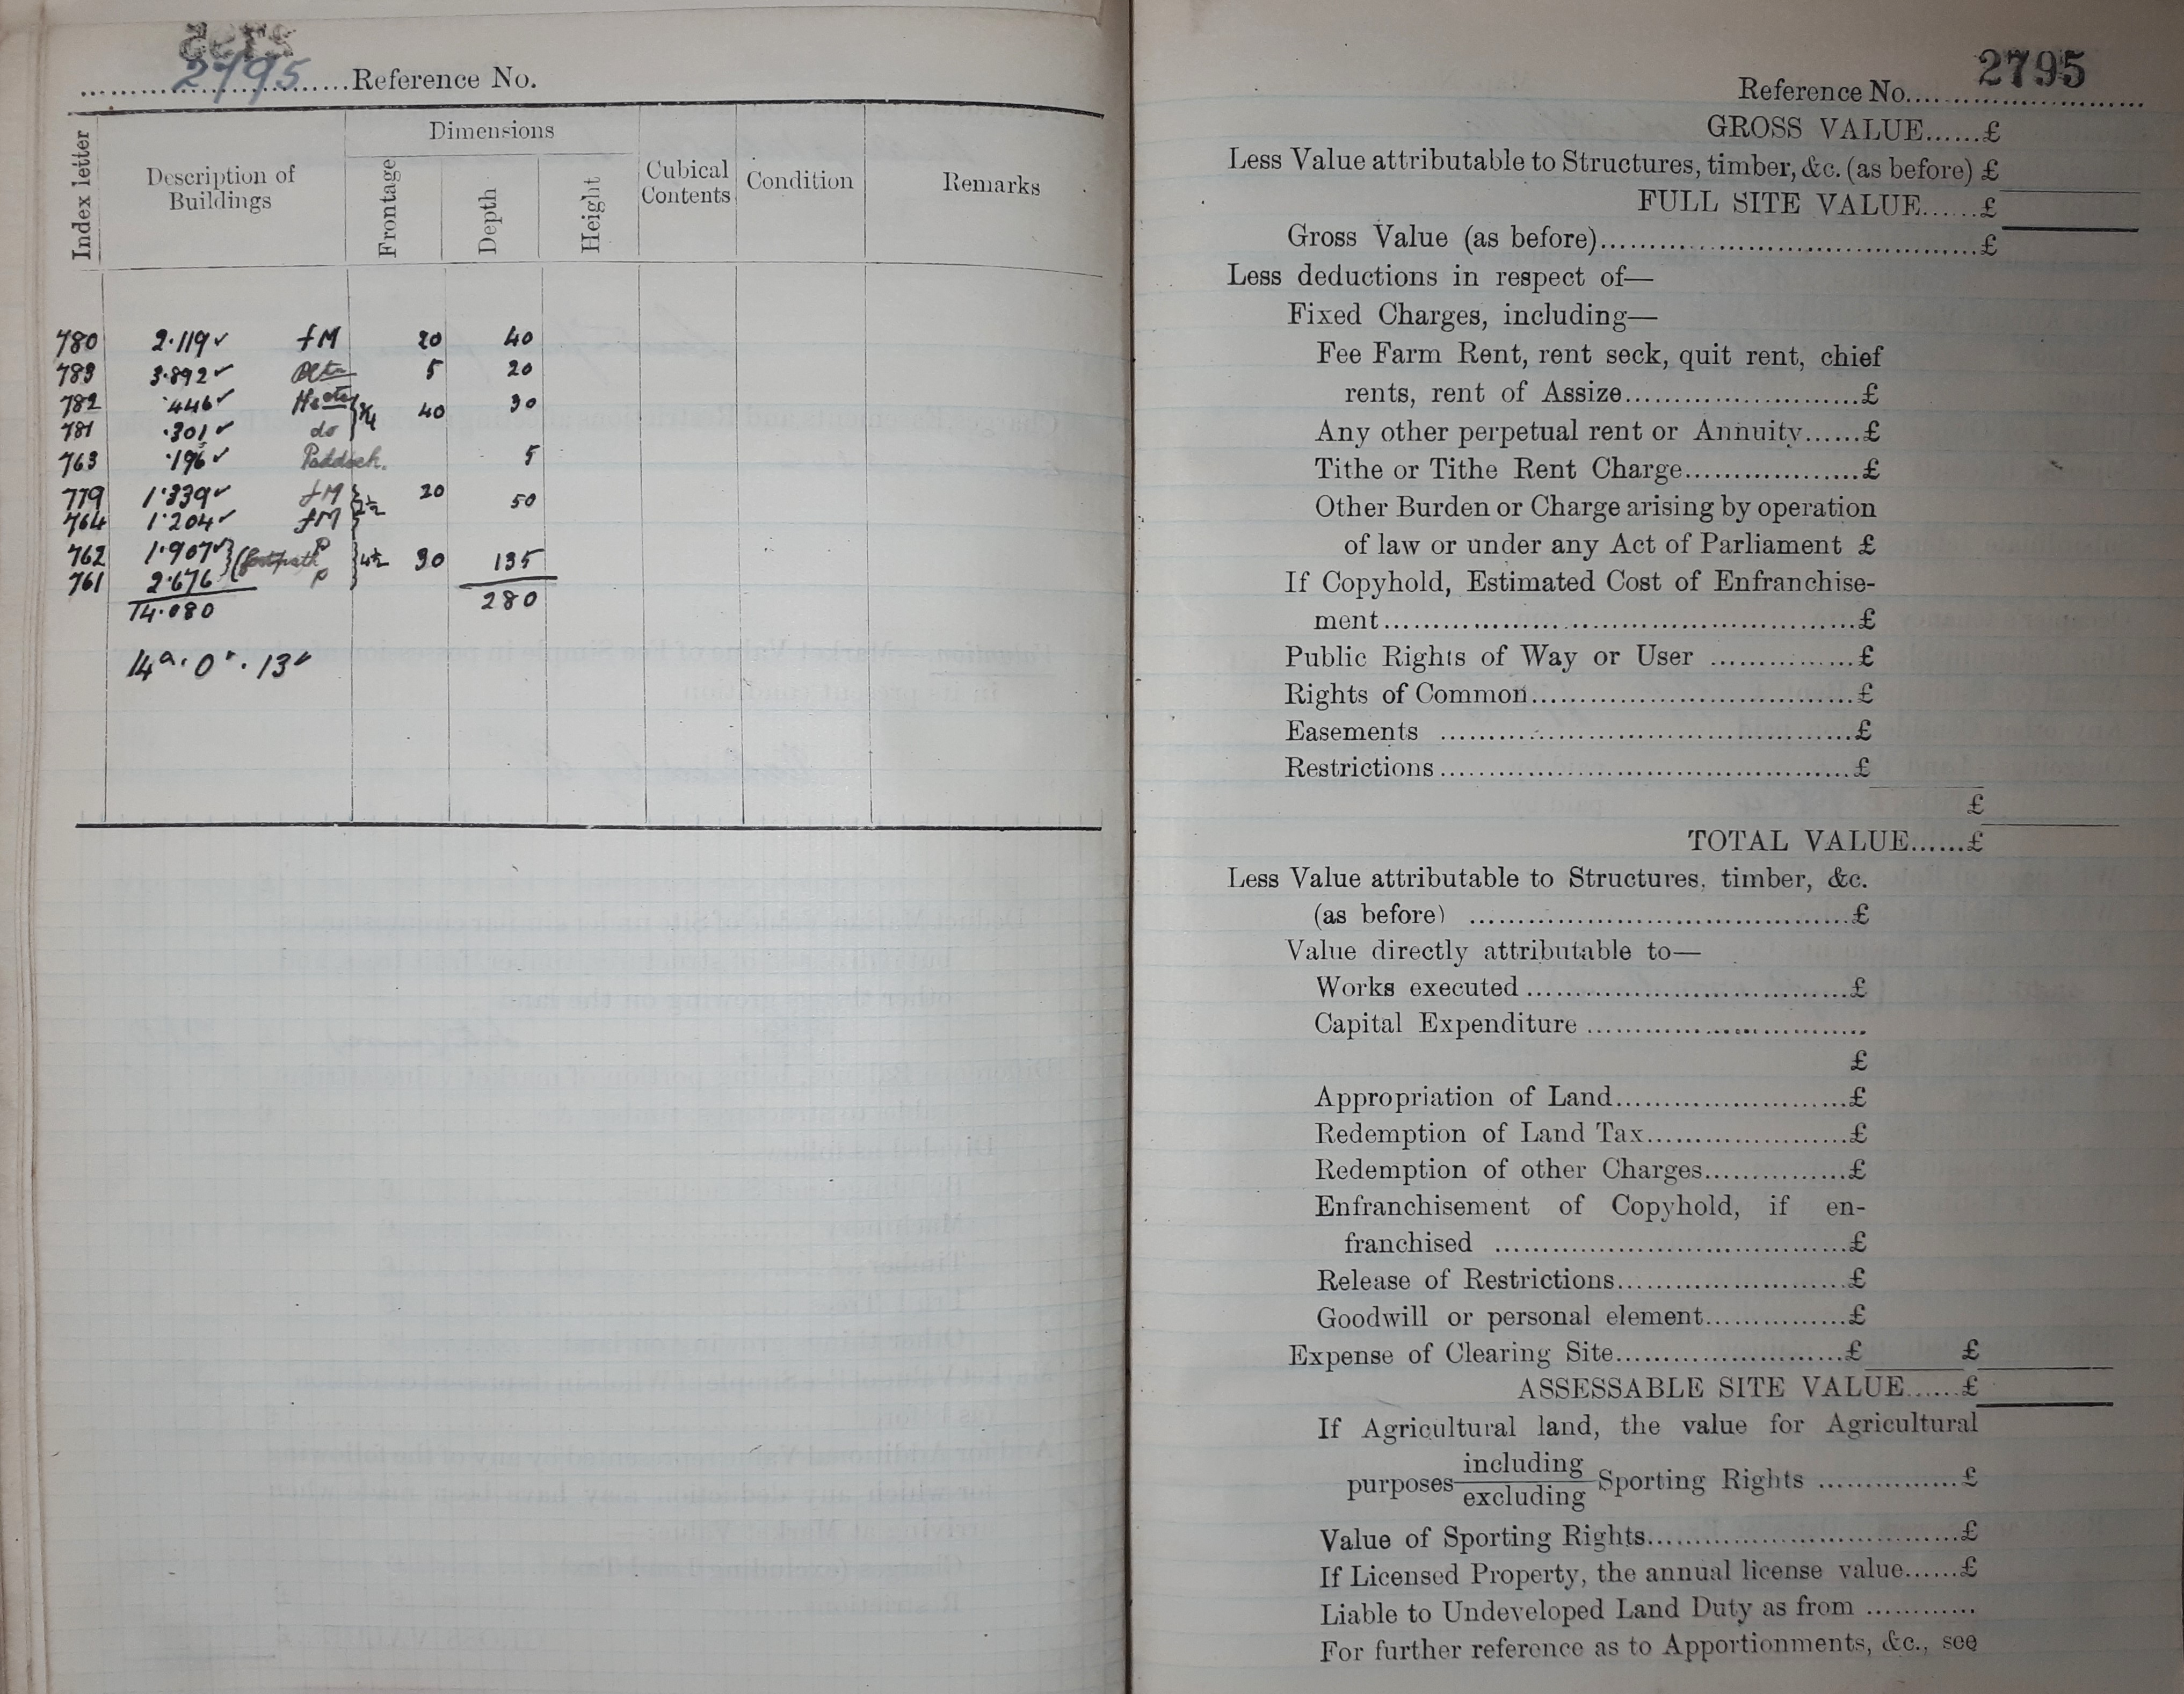 2795 Reference No.
Index letter
Description of Buildings
Dimensions
Frontage
Depth
Height
Cubical Contents
Condition
Remarks
780 2.119✓ fM 20 40
783 3.892✓ 5 20
782 .446✓ Hse etc } ¾ 40 30
781 .301✓ do
763 .196✓ Paddock. 5
779 1.339✓ fM } 2½ 20 50
764 1.204✓ fM
762 1.907✓ } (footpath P } 4½ 30 135
761 2.676 P
14.080 280
14a. 0r. 13
Reference No. 2795
GROSS VALUE......£
Less Value attributable to Structures, timber, &c. (as before) £
FULL SITE VALUE......£
Gross Value (as before)..........£
Less deductions in respect of—
Fixed Charges, including—
Fee Farm Rent, rent seck, quit rent, chief
rents, rent of Assize..........£
Any other perpetual rent or Annuity......£
Tithe or Tithe Rent Charge..........£
Other Burden or Charge arising by operation
of law or under any Act of Parliament £
If Copyhold, Estimated Cost of Enfranchise-
ment..........£
Public Rights of Way or User ..........£
Rights of Common..........£
Easements ..........£
Restrictions..........£
£
TOTAL VALUE......£
Less Value attributable to Structures, timber, &c.
(as before) ..........£
Value directly attributable to—
Works executed ..........£
Capital Expenditure ..........
£
Appropriation of Land..........£
Redemption of Land Tax..........£
Redemption of other Charges..........£
Enfranchisement of Copyhold, if en-
franchised ..........£
Release of Restrictions..........£
Goodwill or personal element..........£
Expense of Clearing Site..........£ £
ASSESSABLE SITE VALUE......£
If Agricultural land, the value for Agricultural
purposes including
excluding Sporting Rights ..........£
Value of Sporting Rights..........£
If Licensed Property, the annual license value......£
Liable to Undeveloped Land Duty as from ............
For further reference as to Apportionments, &c., see